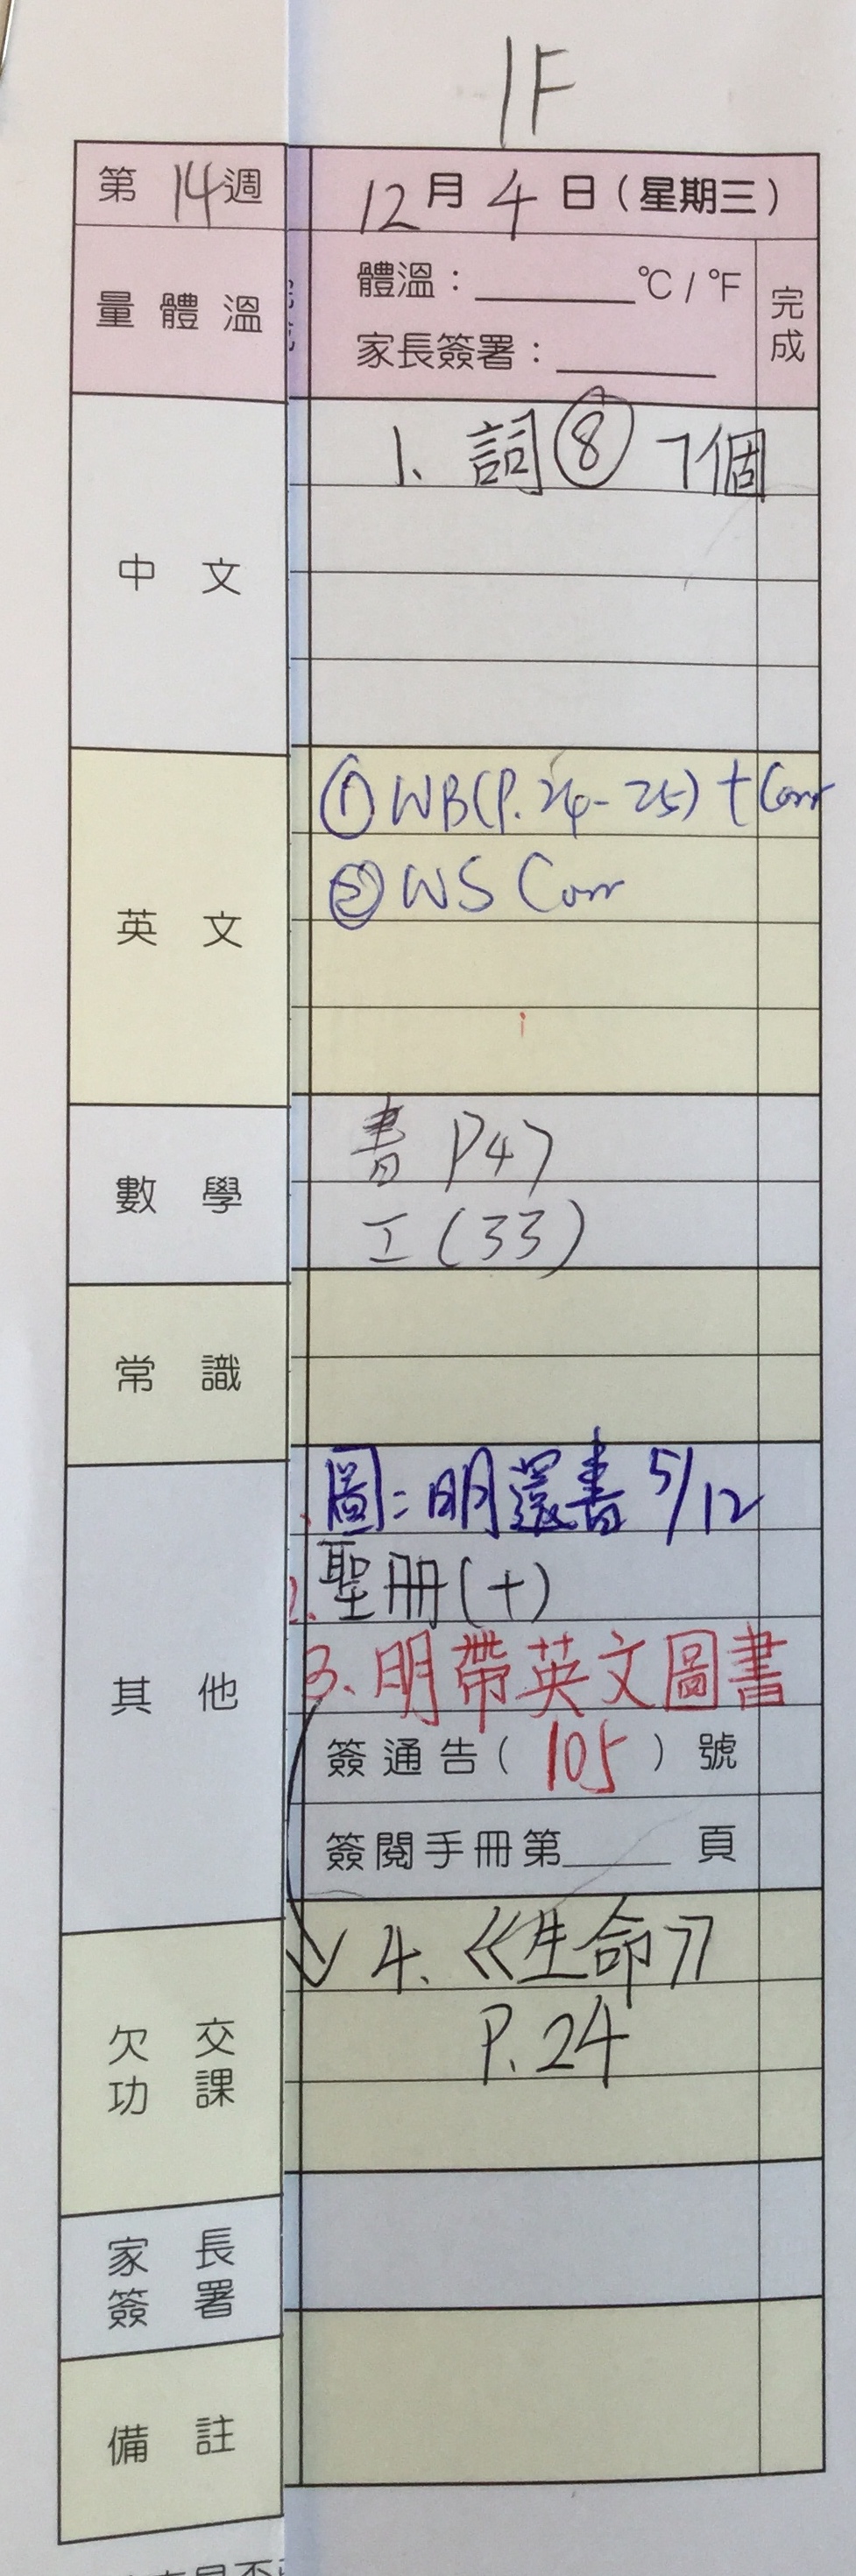 1F
第 14 週 12月 4 日(星期三)
量體溫 體溫:______°C / °F
家長簽署:______
完成
中文 1、詞⑧ 7個
英文 ① WB(P.24-25) + Corr
② WS Corr
數學 書 P47
工(33)
常識
其他 1.圖:明還書 5/12
2.聖冊(+)
3.明帶英文圖書
簽通告( 105 )號
簽閱手冊第______頁
欠交功課 4.《生命》
P.24
家長簽署
備註